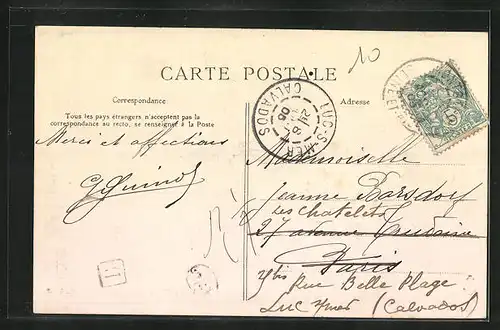 10
CARTE POSTALE
Correspondance
Adresse
Tous les pays étrangers n'acceptent pas la
correspondance au recto, se renseigner à la Poste
LUC-S-MER
CALVADOS
Merci et affections
Mademoiselle
Jeanne
Les Chatelets
27 avenue
Paris
bis Rue Belle Plage
Luc s/mer (Calvados)